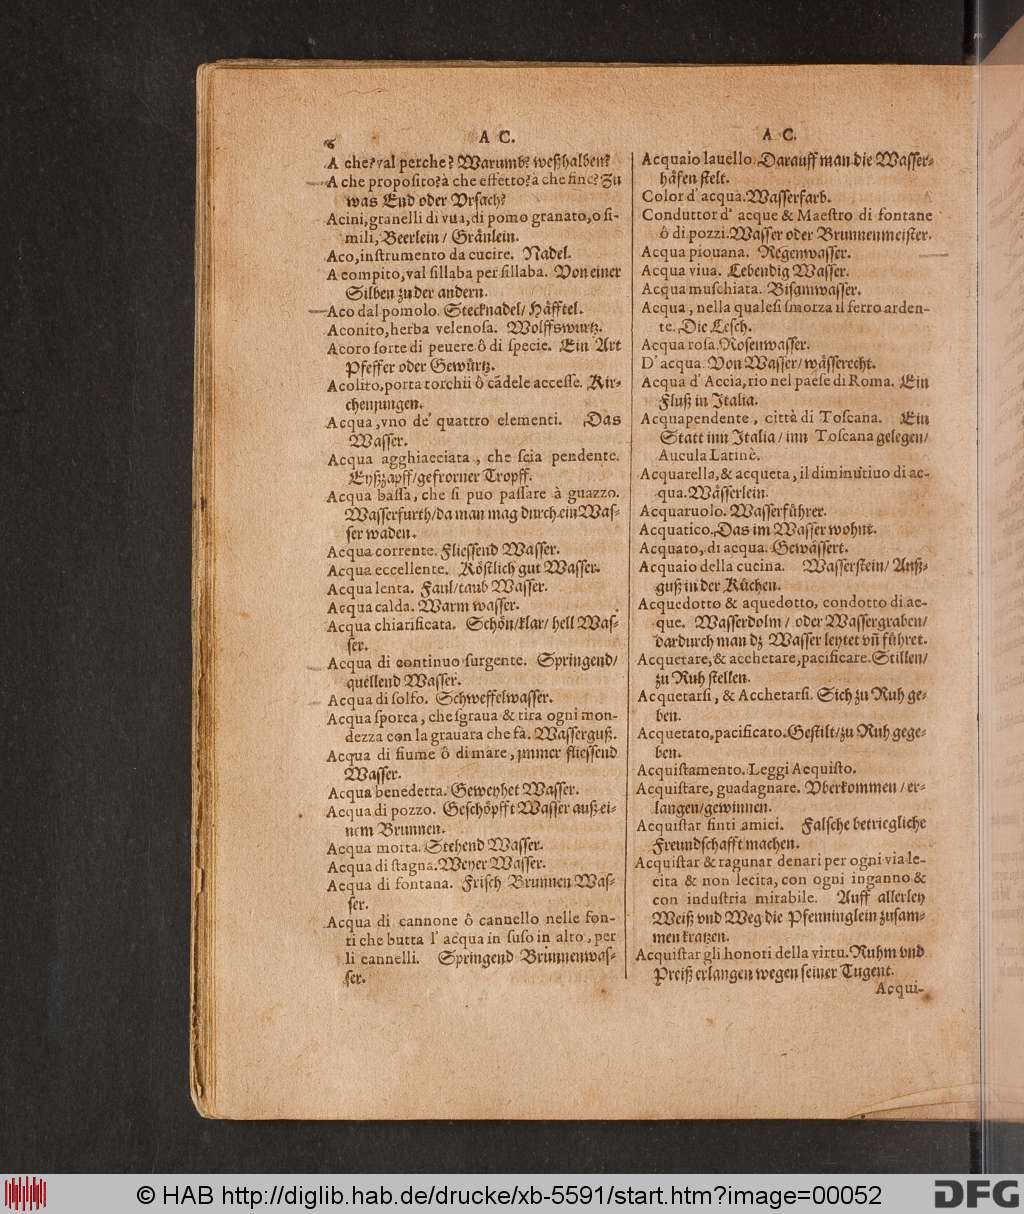 6
A C.
A che? val perche? Warumb? weßhalben?
A che proposito? à che effetto? à che fine? Zu
was End oder Vrsach?
Acini, granelli di vua, di pomo granato, o si-
mili, Beerlein / Gränlein.
Aco, instrumento da cucire. Nadel.
A compito, val sillaba per sillaba. Von einer
Silben zu der andern.
Aco dal pomolo. Stecknadel / Häfftel.
Aconito, herba velenosa. Wolffswurtz.
Acoro sorte di peuere ô di specie. Ein Art
Pfeffer oder Gewürtz.
Acolito, porta torchii ô cādele accesse. Kir-
chenjungen.
Acqua, vno de' quattro elementi. Das
Wasser.
Acqua agghiacciata, che scia pendente.
Eyßzapff / gefrorner Tropff.
Acqua bassa, che si puo passare à guazzo.
Wasserfurth / da man mag durch ein Was-
ser waden.
Acqua corrente. Fliessend Wasser.
Acqua eccellente. Köstlich gut Wasser.
Acqua lenta. Faul / taub Wasser.
Acqua calda. Warm wasser.
Acqua chiarificata. Schön / klar / hell Was-
ser.
Acqua di continuo surgente. Springend /
quellend Wasser.
Acqua di solfo. Schweffelwasser.
Acqua sporca, che sgraua & tira ogni mon-
dezza con la grauara che fa. Wasserguß.
Acqua di fiume ô di mare, jmmer fliessend
Wasser.
Acqua benedetta. Geweyhet Wasser.
Acqua di pozzo. Geschöpfft Wasser auß ei-
nem Brunnen.
Acqua morta. Stehend Wasser.
Acqua di stagna. Weyer Wasser.
Acqua di fontana. Frisch Brunnen Was-
ser.
Acqua di cannone ô cannello nelle fon-
ti che butta l' acqua in suso in alto, per
li cannelli. Springend Brunnenwas-
ser.
A C.
Acquaio lauello. Darauff man die Wasser-
häfen stelt.
Color d' acqua. Wasserfarb.
Conduttor d' acque & Maestro di fontane
ô di pozzi. Wasser oder Brunnenmeister.
Acqua piouana. Regenwasser.
Acqua viua. Lebendig Wasser.
Acqua muschiata. Bisamwasser.
Acqua, nella quale si smorza il ferro arden-
te. Die Lesch.
Acqua rosa. Rosenwasser.
D' acqua. Von Wasser / wässerecht.
Acqua d' Accia, rio nel paese di Roma. Ein
Fluß in Italia.
Acquapendente, città di Toscana. Ein
Statt inn Italia / inn Toscana gelegen /
Aucula Latinè.
Acquarella, & acqueta, il diminutiuo di ac-
qua. Wässerlein.
Acquaruolo. Wasserführer.
Acquatico. Das im Wasser wohnt.
Acquato, di acqua. Gewässert.
Acquaio della cucina. Wasserstein / Auß-
guß in der Küchen.
Acquedotto & aquedotto, condotto di ac-
que. Wasserdolm / oder Wassergraben /
dardurch man dz Wasser leytet vñ führet.
Acquetare, & acchetare, pacificare. Stillen /
zu Ruh stellen.
Acquetarsi, & Acchetarsi. Sich zu Ruh ge-
ben.
Acquetato, pacificato. Gestilt / zu Ruh gege-
ben.
Acquistamento. Leggi Acquisto.
Acquistare, guadagnare. Vberkommen / er-
langen / gewinnen.
Acquistar finti amici. Falsche betriegliche
Freundschafft machen.
Acquistar & ragunar denari per ogni via le-
cita & non lecita, con ogni inganno &
con industria mirabile. Auff allerley
Weiß vnd Weg die Pfenninglein zusam-
men kratzen.
Acquistar gli honori della virtu. Ruhm vnd
Preiß erlangen wegen seiner Tugent.
Acqui-
© HAB http://diglib.hab.de/drucke/xb-5591/start.htm?image=00052
DFG